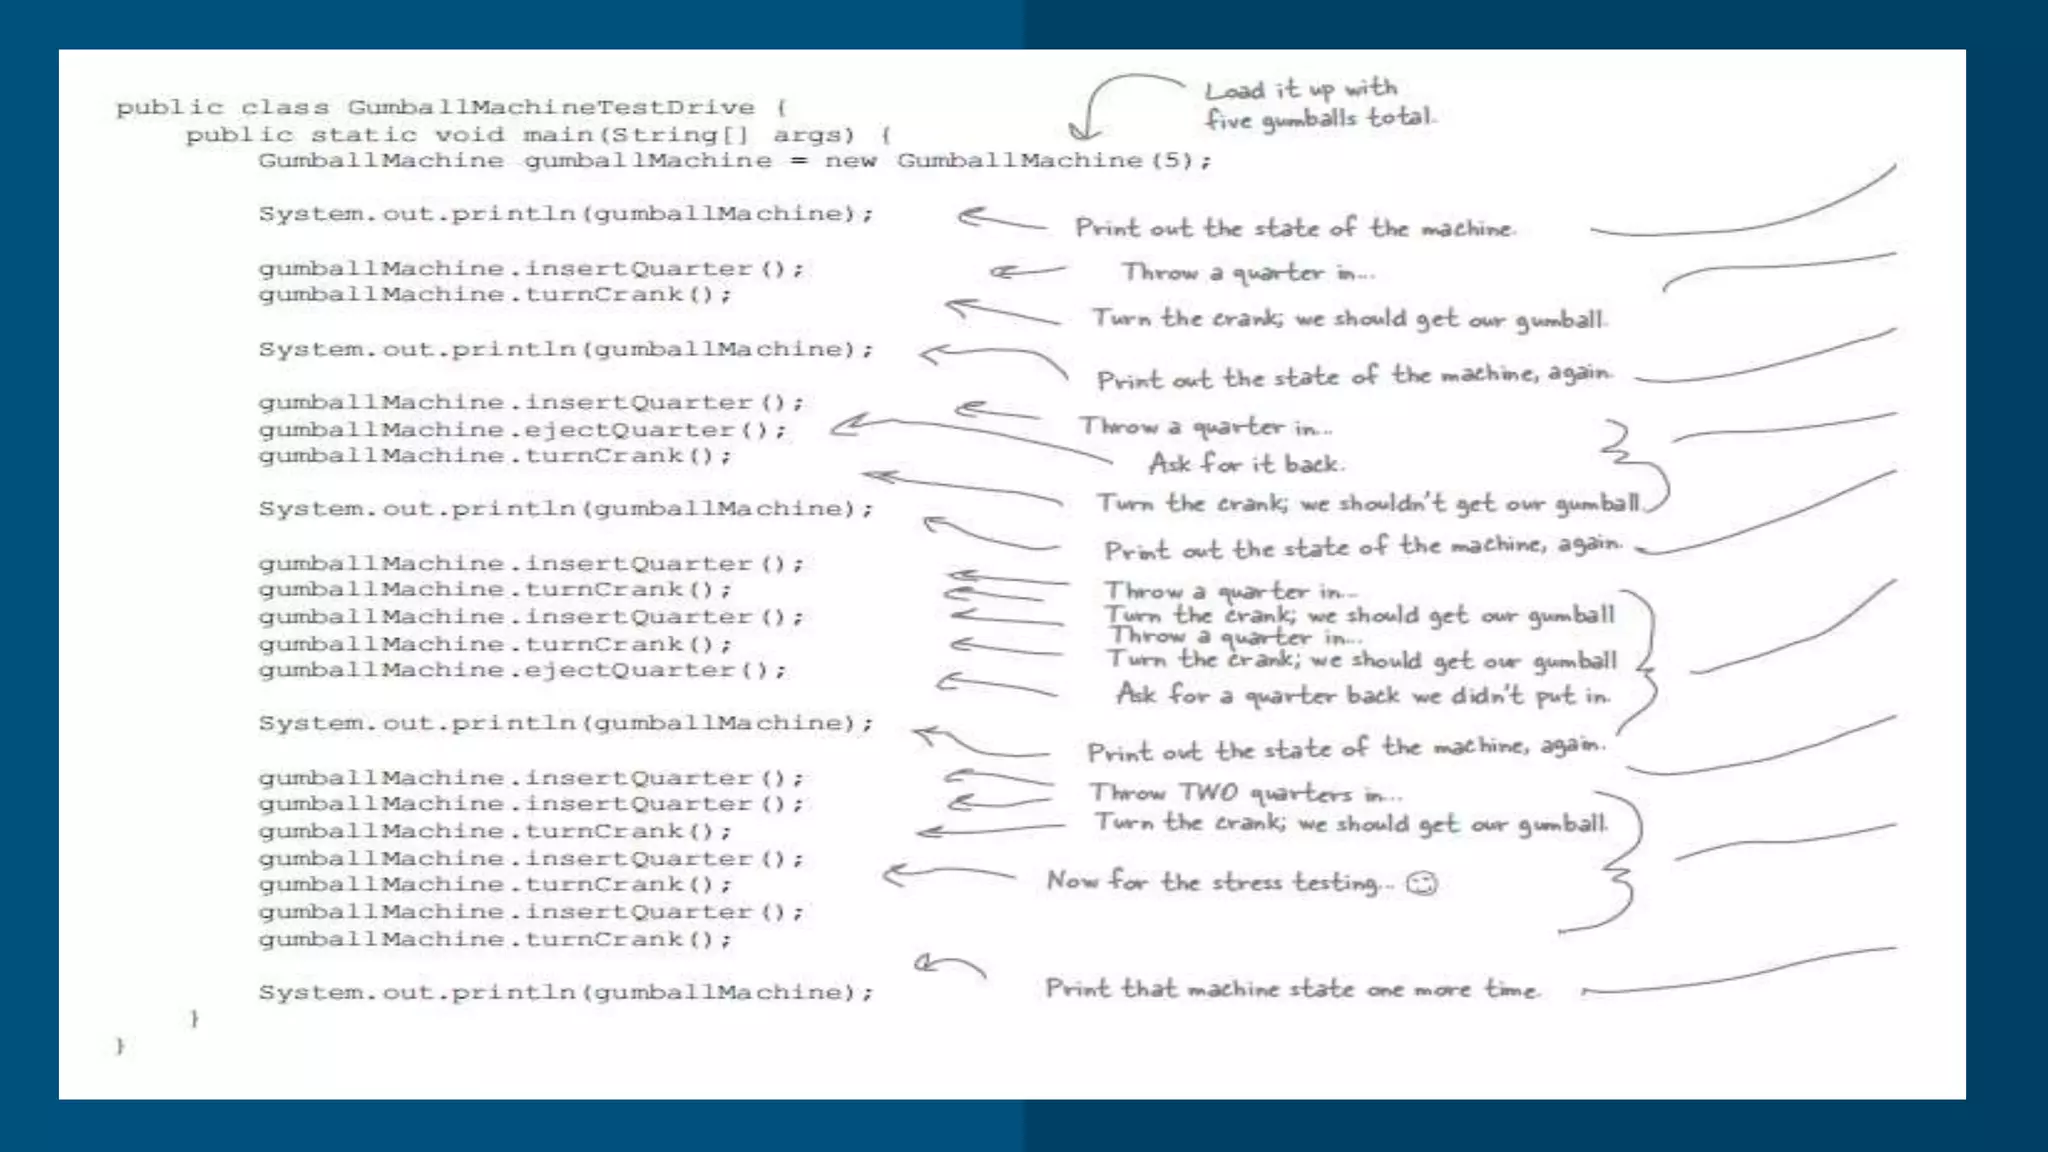 Load it up with
five gumballs total.
public class GumballMachineTestDrive {
public static void main(String[] args) {
GumballMachine gumballMachine = new GumballMachine(5);
System.out.println(gumballMachine);
Print out the state of the machine.
gumballMachine.insertQuarter();
Throw a quarter in...
gumballMachine.turnCrank();
Turn the crank; we should get our gumball.
System.out.println(gumballMachine);
Print out the state of the machine, again.
gumballMachine.insertQuarter();
Throw a quarter in...
gumballMachine.ejectQuarter();
Ask for it back.
gumballMachine.turnCrank();
Turn the crank; we shouldn't get our gumball.
System.out.println(gumballMachine);
Print out the state of the machine, again.
gumballMachine.insertQuarter();
Throw a quarter in...
gumballMachine.turnCrank();
Turn the crank; we should get our gumball
gumballMachine.insertQuarter();
Throw a quarter in...
gumballMachine.turnCrank();
Turn the crank; we should get our gumball
gumballMachine.ejectQuarter();
Ask for a quarter back we didn't put in.
System.out.println(gumballMachine);
Print out the state of the machine, again.
gumballMachine.insertQuarter();
Throw TWO quarters in...
gumballMachine.insertQuarter();
gumballMachine.turnCrank();
Turn the crank; we should get our gumball.
gumballMachine.insertQuarter();
Now for the stress testing...
gumballMachine.turnCrank();
gumballMachine.insertQuarter();
gumballMachine.turnCrank();
System.out.println(gumballMachine);
Print that machine state one more time.
}
}